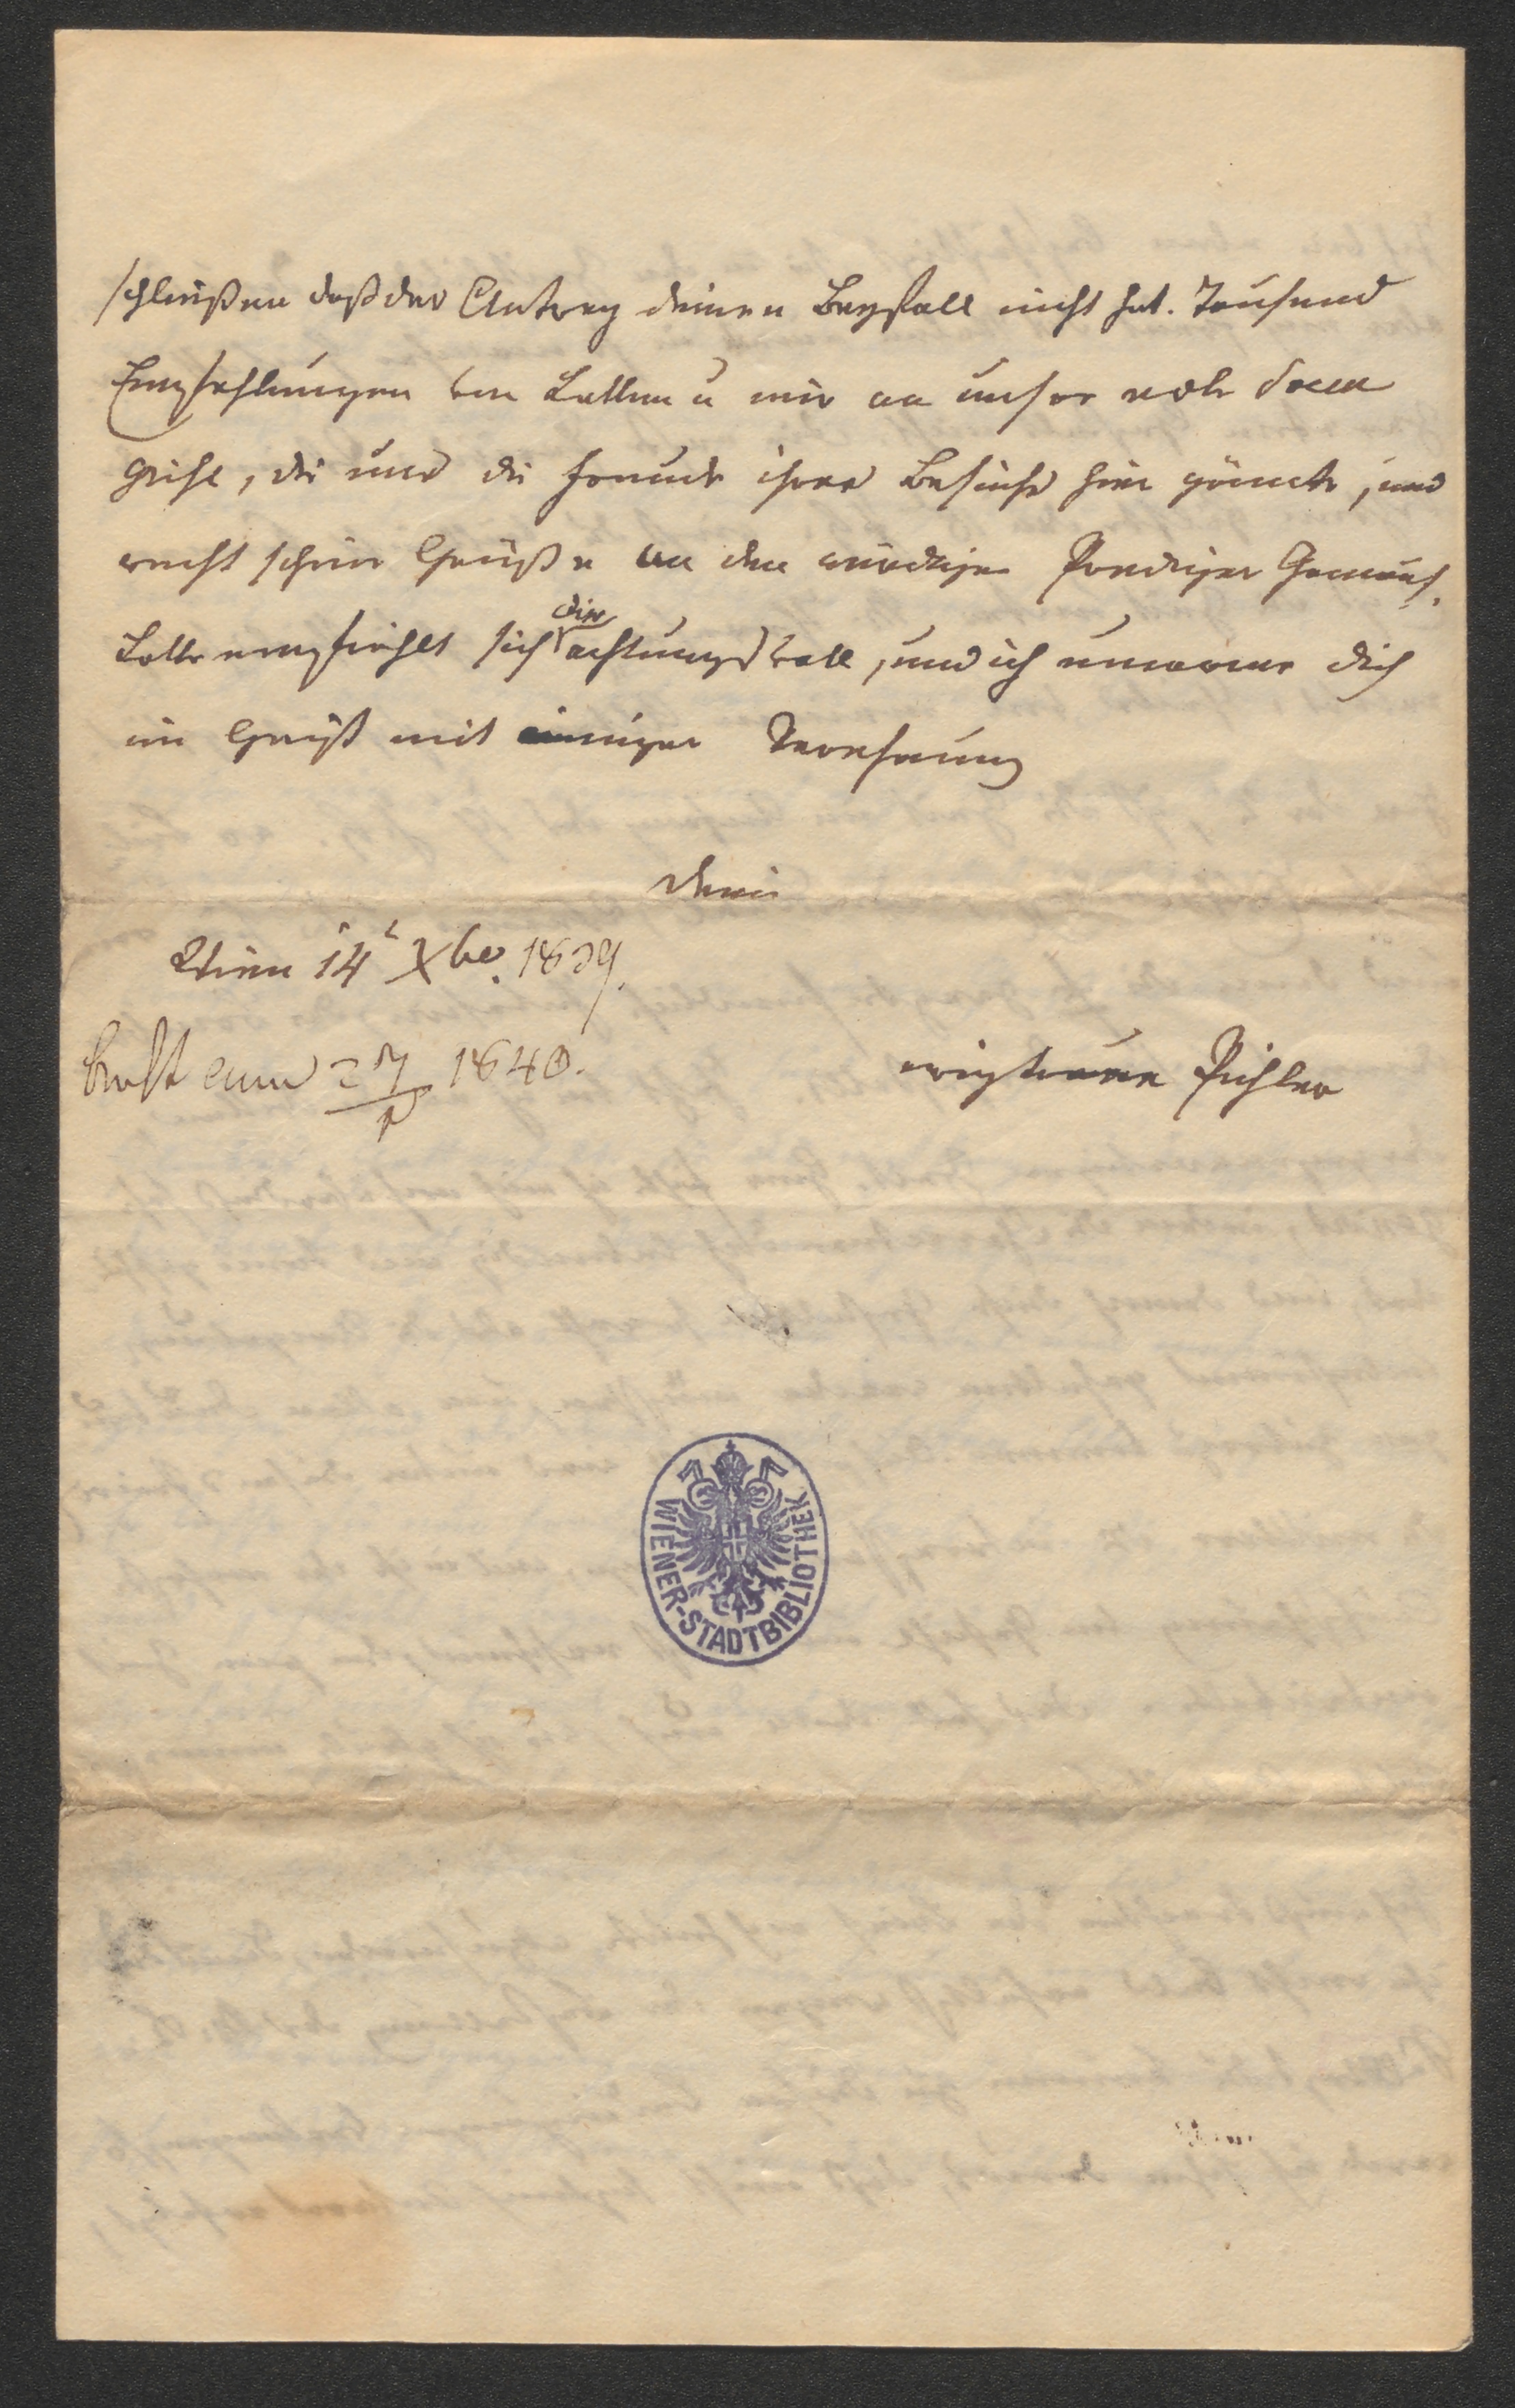 schlüßen daß der Antrag deinen Beyfall nicht hat. Tausend
Empfehlungen von Lotten u mir an unsre edle Frau
Geist, die uns die Freude ihres Besuchs hier gönnte, und
recht schöne Grüße an den würdigen Prediger
Lotte empfiehlt sich dir achtungsvoll, und ich umarme dich
im Geist mit inniger Verehrung
dein
Wien 14t Xber. 1839.
ewigtreuer Pichler
1840.
WIENER-STADTBIBLIOTHEK